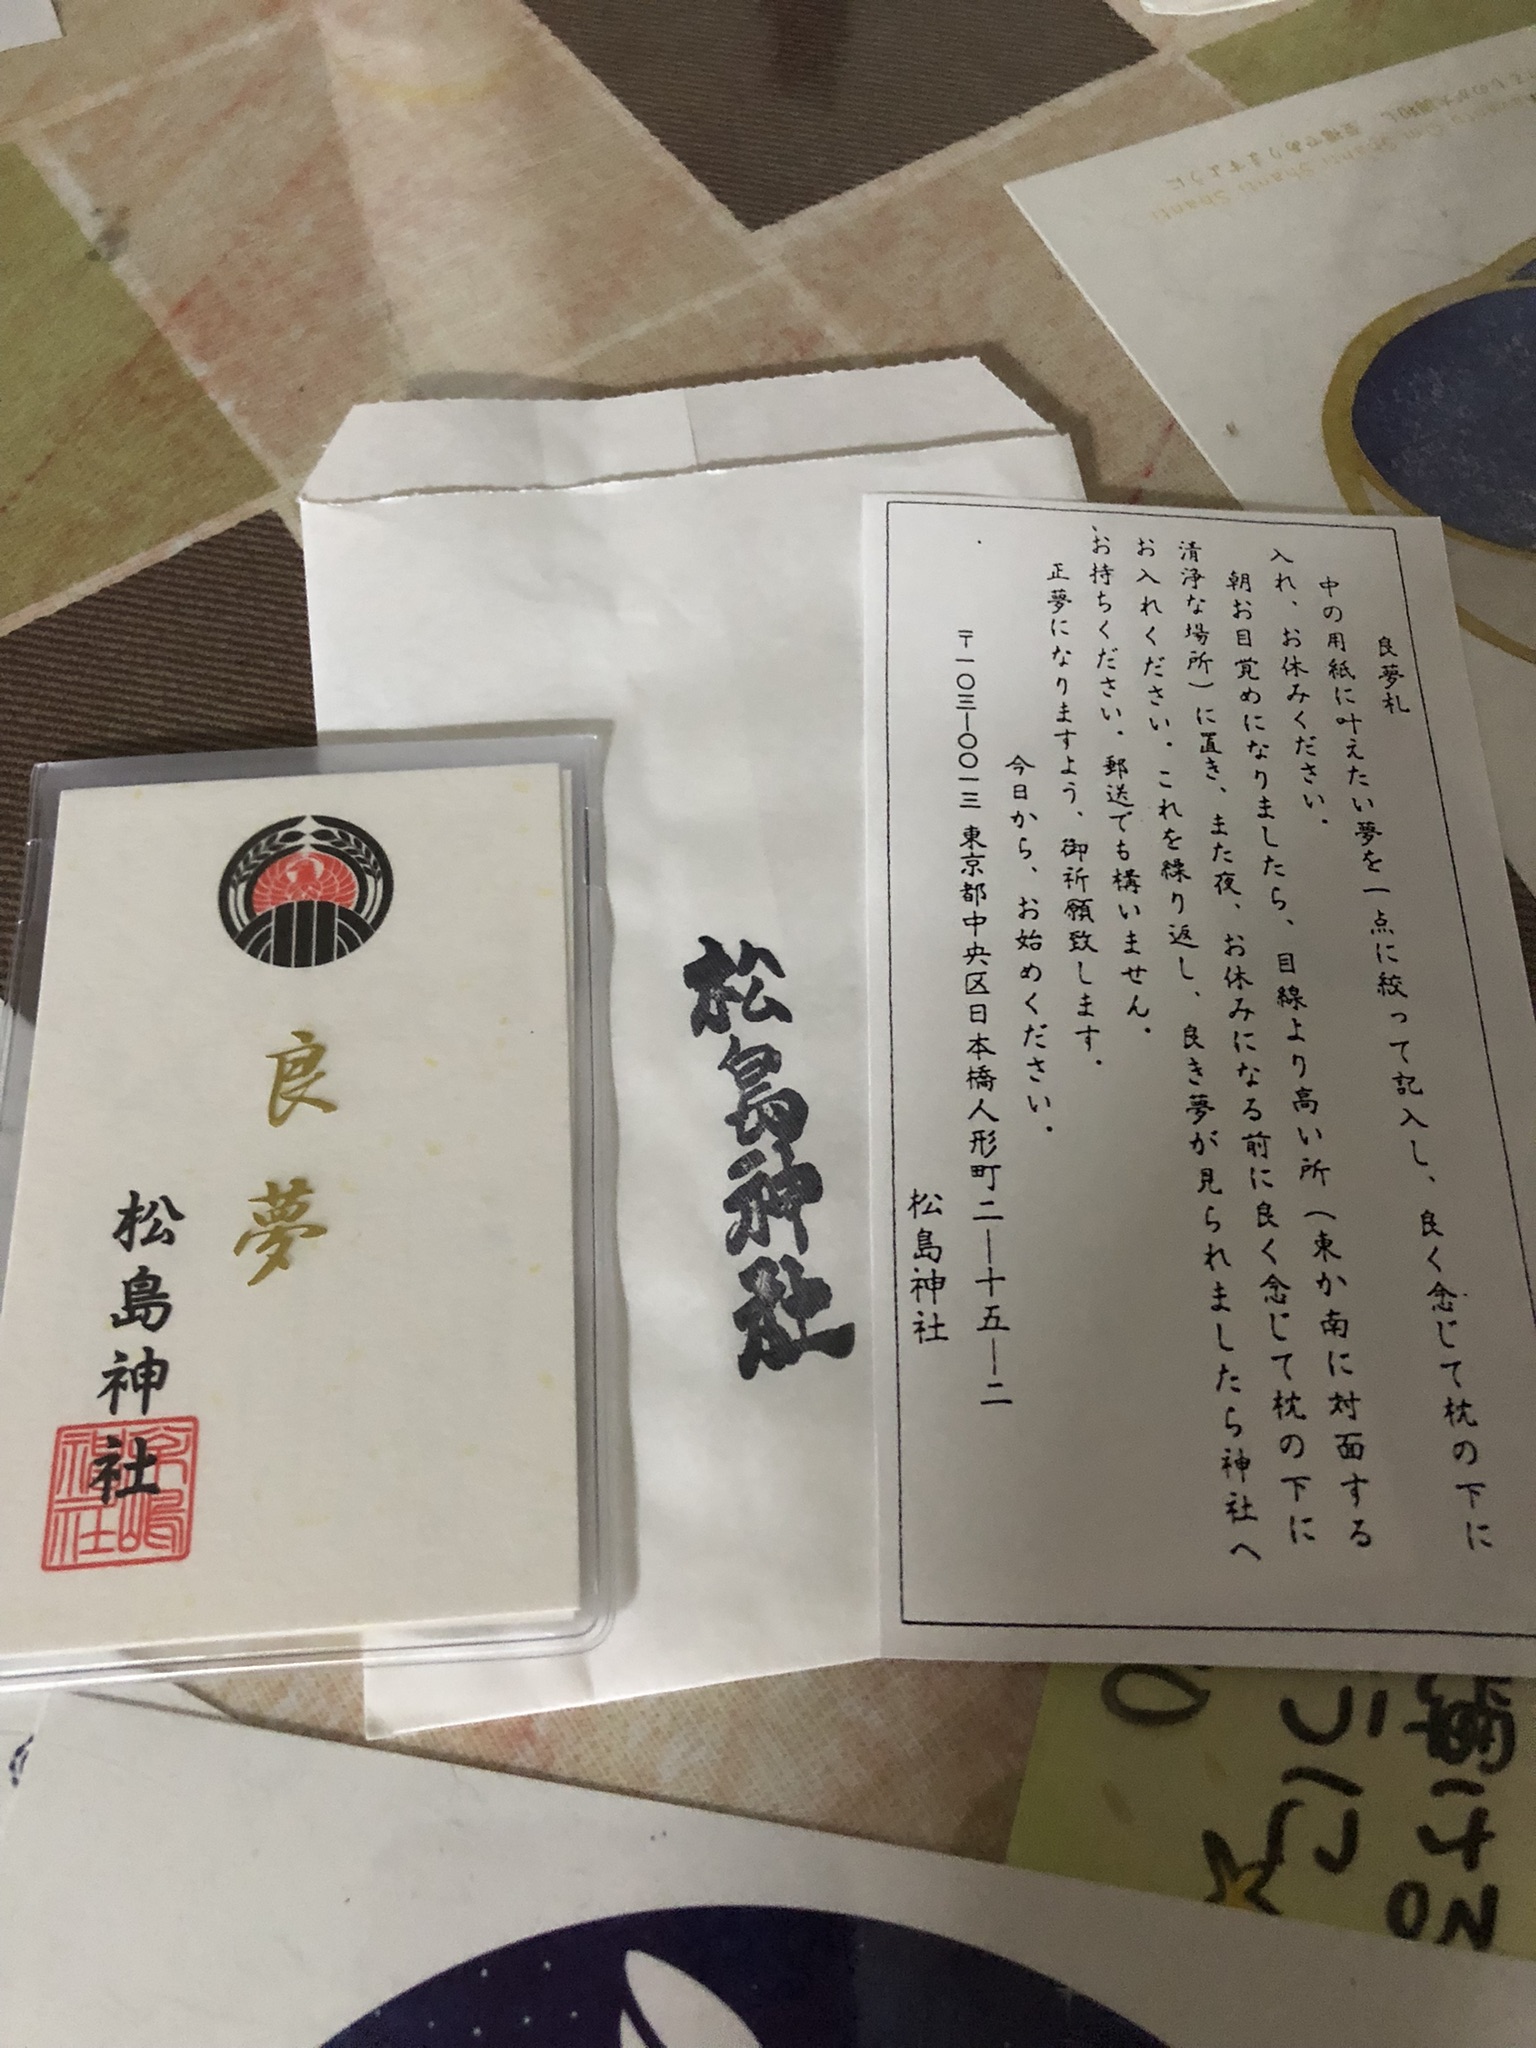 良夢札
中の用紙に叶えたい夢を一点に絞って記入し、良く念じて枕の下に
入れ、お休みください.
朝お目覚めになりましたら、目線より高い所(東か南に対面する
清浄な場所)に置き、また夜、お休みになる前に良く念じて枕の下に
お入れください.これを繰り返し、良き夢が見られましたら神社へ
お持ちください.郵送でも構いません.
正夢になりますよう、御祈願致します.
今日から、お始めください.
〒一〇三ー〇〇一三 東京都中央区日本橋人形町二ー十五ー二
松島神社
松島神社
良夢
松島神社
Shanti Shanti
NO